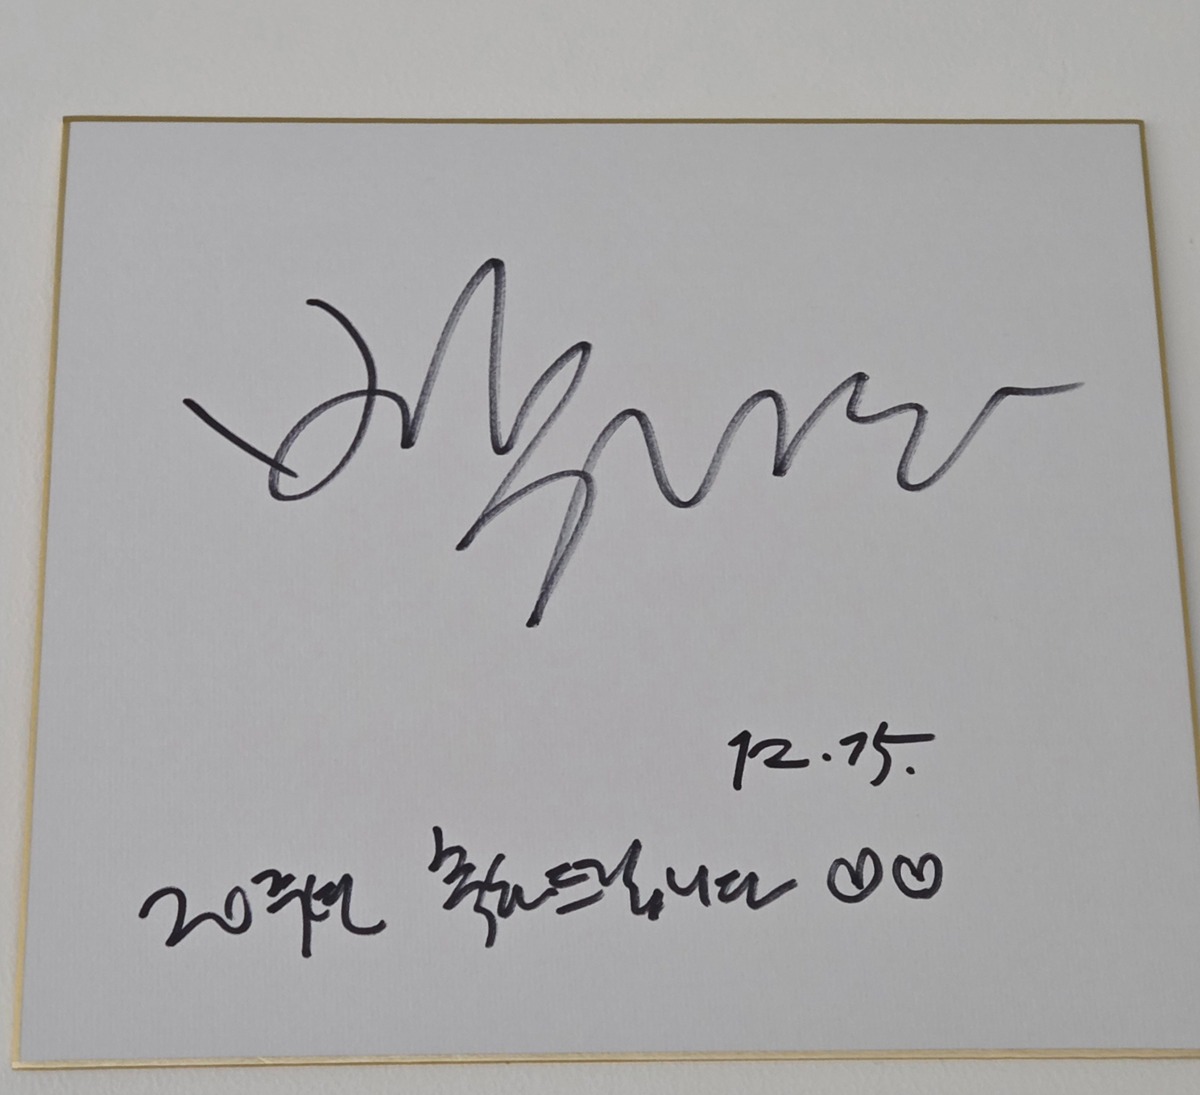 12.15.
20주년 축하드립니다 ♡♡